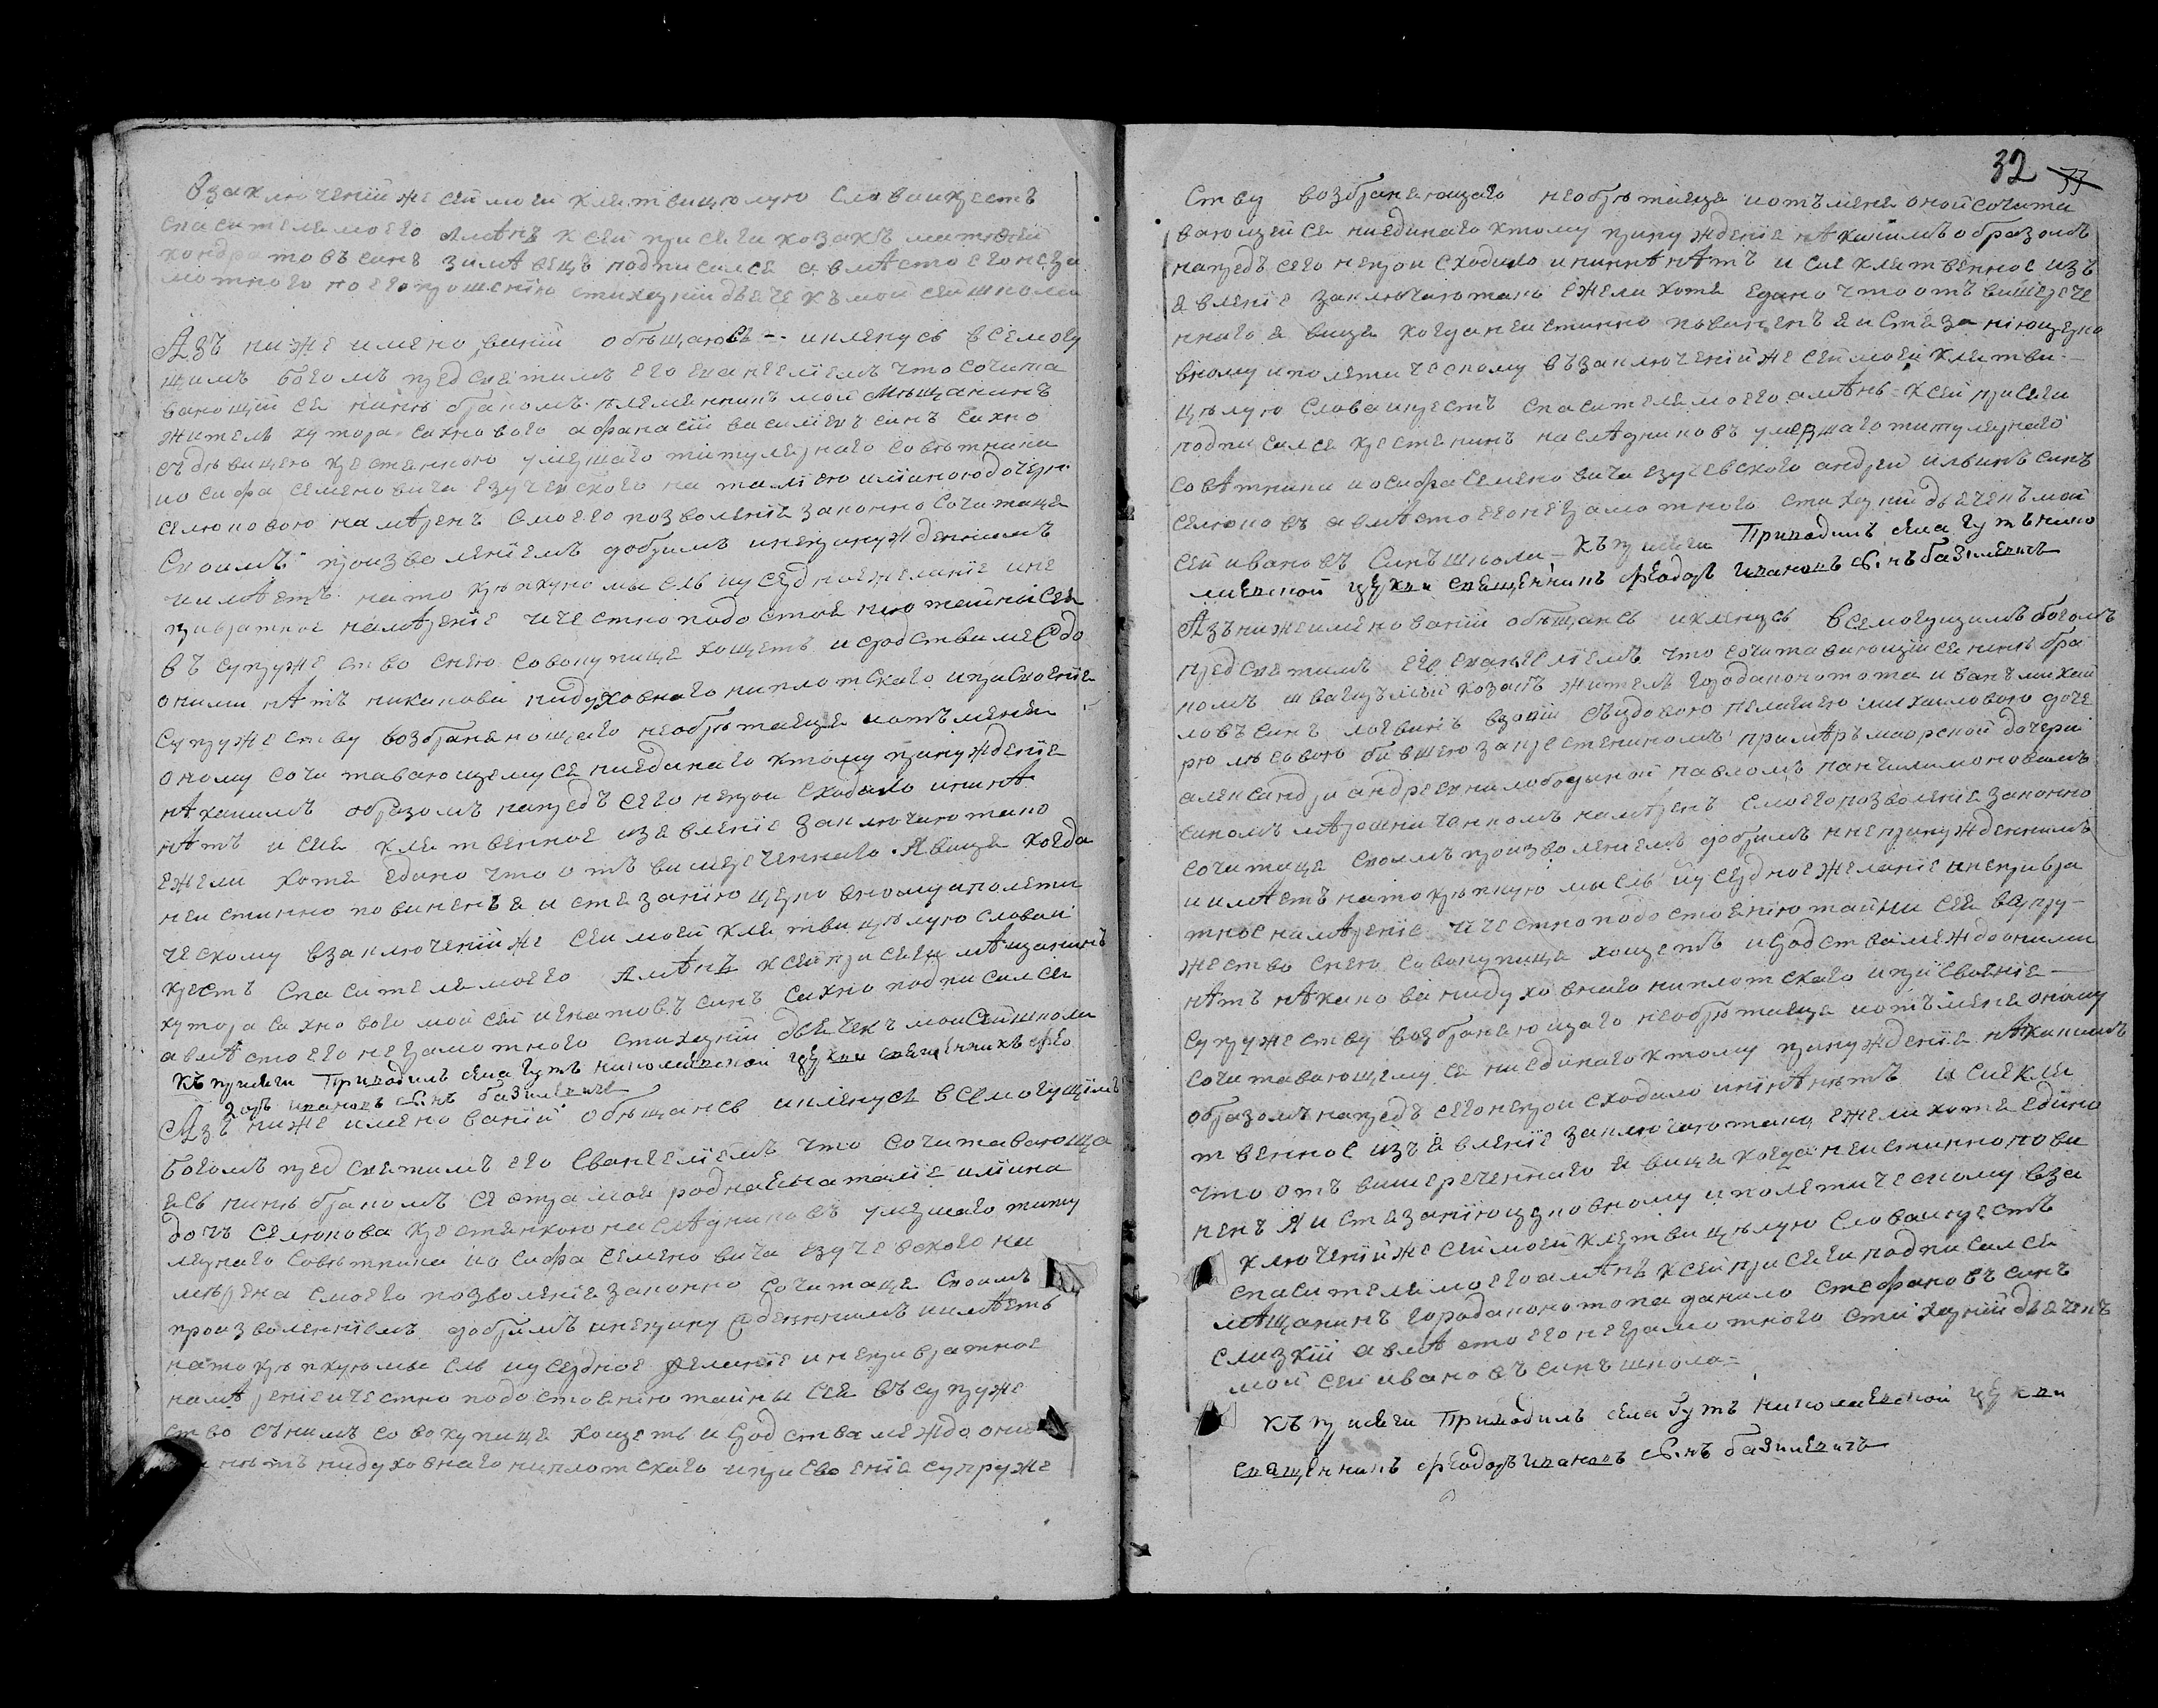 Взаключеніи же сей моей клятви цюлую Слова икрестъ
спасителя моего Аминъ ксей присеги козакъ матвѣй
кондратовъ синъ подписался авмѣсто его негра
мотного поегопрошенію стихарній дьячекъ мойсей школа
Азъ ниже имено ваній обѣщаюсь -- иклянусь Всемогу
щимъ богомъ предсвятимъ его евангелиемъ что сочита
вающій ся нинѣ бракомъ племенникъ мой мѣщанинъ
житель хутора сахнового афанасій василіевъ синъ Сахно
съдѣвицею крестянкою умершаго титулярнаго совѣтника
иосифа семеновича езучевского наталіею илииною дочерю
селюковою намѣренъ смоего позволенія законно Сочитаця
Своимъ произволеніемъ добримъ инепринужденнимъ
иимѣетъ на то крѣпкую мысль иусердноежеланіе ине
привратное намѣреніе ичестно подостоянію тайни Сея
въ супружество снею совокупица хощетъ исродства междо
оними нѣтъ никакова нидуховнаго ниплотскаго иприсвоенія
Супружеству возбраняющаго необрѣтаеця иотъ меня
оному сочитавающемуся ниединаго ктому принужденія
нѣкакимъ образомъ напредъ сего непроисходило ининѣ
нѣтъ и сие клятвенное изявленіе заключаю тако
ежели хотя едино что отъ вишереченнаго Явица когда
неистинно повиненъ я истезанію церковному иполити
ческому взаключеніи же сей моей клятви цѣлую слова и
крестъ Спасителя моего Аминъ ксей присеги мѣщанинъ
хутора сахнового мойсей игнатовъ синъ Сахно подписался
авмѣсто его неграмотного стихарній дьячекъ мойсей школа
къ присяги Приводилъ села Гутъ николаевской церкви священникъ фео
доръ ивановъ с.нъ базилевичъ
Азъ ниже имено ваній обѣщаюсь иклянусь всемогущимъ
Богомъ предсвятимъ его Евангелиемъ что сочитавающа
яся нинѣ бракомъ сестра моя родная наталіе илиина
дочъ Селюкова крестянкою наслѣдниковъ умершаго титу
лярнаго Совѣтника иосифа семеновича езучевского на
мѣрена смоего позволенія законно сочитаця Своимъ
произволеніемъ добримъ инепринужденнимъ иимѣетъ
нато крѣпкуюмысль иусердное желаніе инепривратное
намѣреніе ичестно подостоянію тайны сея въсупруже
ство съ нимъ совокупица хощетъ исродства междо оними
нѣтъ нидуховнаго ниплотскаго иприсвоенія супруже
32 33
Ству возбраняющаго необрѣтаеця иотъменя оной сочита
вающейся ниединаго ктому принужденія нѣкакимъ образомъ
напредъ сего непроисходило инине нѣтъ и сие клятвенное изъ
явленіе заключаю тако ежели хотя едино что отъ вишерече
ннаго явица когда неистинно повиненъ я истезанію церко
вному иполитическому взаключеніи же сей моей клятви
цѣлую Слова икрестъ спасителя моего аминь ксей присеги
подписался крестянинъ наслѣдниковъ умершаго титулярнаго
совѣтника иосифа Семеновича езучевского андрей ильинъ синъ
селюковъ авмѣсто его неграмотного стихарній дьячекъ мой
сей ивановъ Синъ школа – Къ присяги Приводилъ села Гутъ нико
лаевской церкви священникъ феодоръ ивановъ с.нъ базилевичъ
Азъ нижеименованій обѣщаюсь иклянусь Всемогущимъ богомъ
предсвятимъ его еванъгелиемъ что сочитавающійся нинѣ бра
комъ швагеръмой козакъ житель города конотопа иванъ михай
ловъ синъ вдовій съвдовою пелагиею михайловою доче
рю бывшею за крестяниномъ примѣръ маюрской дочери
александри андреевни лободиной павломъ
синомъ мѣрошниченкомъ намѣренъ смоегопозволенія законно
сочитаця своимъ произволеніемъ добримъ инепринужденнимъ
иимѣетъ натокрѣпкую мысль иусердное желаніе инепривра
тное намѣреніе ичестно подостоянію тайни сея всупру-
жество снею совокупица хощетъ исродства междо оними
нѣтъ нѣкакова нидуховнаго ниплотскаго иприсвоенія
Супружеству возбраняющаго необрѣтаеця иотъменя оному
Сочитавающемуся ниединаго ктому принужденія нѣкакимъ
образомъ напредъ сегонепроисходило ининѣ нѣтъ и сие кля
твенное изъявленіе заключаю тако ежели хотя едино
что отъ вишереченнаго явица когда неистинно пови
ненъ я истезанію церковному иполитическому вза
ключеніи же сей моей клятви цѣлую Слова икрестъ
спасителя моего аминъ ксей присеги подписался
мѣщанинъ города конотопа данило стефановъ синъ
слизкій авмѣсто его неграмотного стихарній дьячекъ
мойсей ивановъ синъ школа =
къ присяги Приводилъ села Гутъ николаевской церкви
священникъ феодоръ ивановъ с.нъ базилевичъ